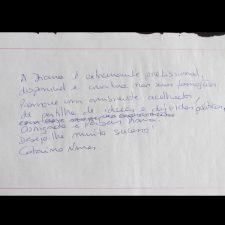 A Joana é extremamente profissional,
disponível e contribui nas suas formações
Promove um ambiente acolhedor,
de partilha de ideias e dúvidas práticas,
Obrigada e parabéns Joana.
Desejo-lhe muito sucesso
Catarina Nunes